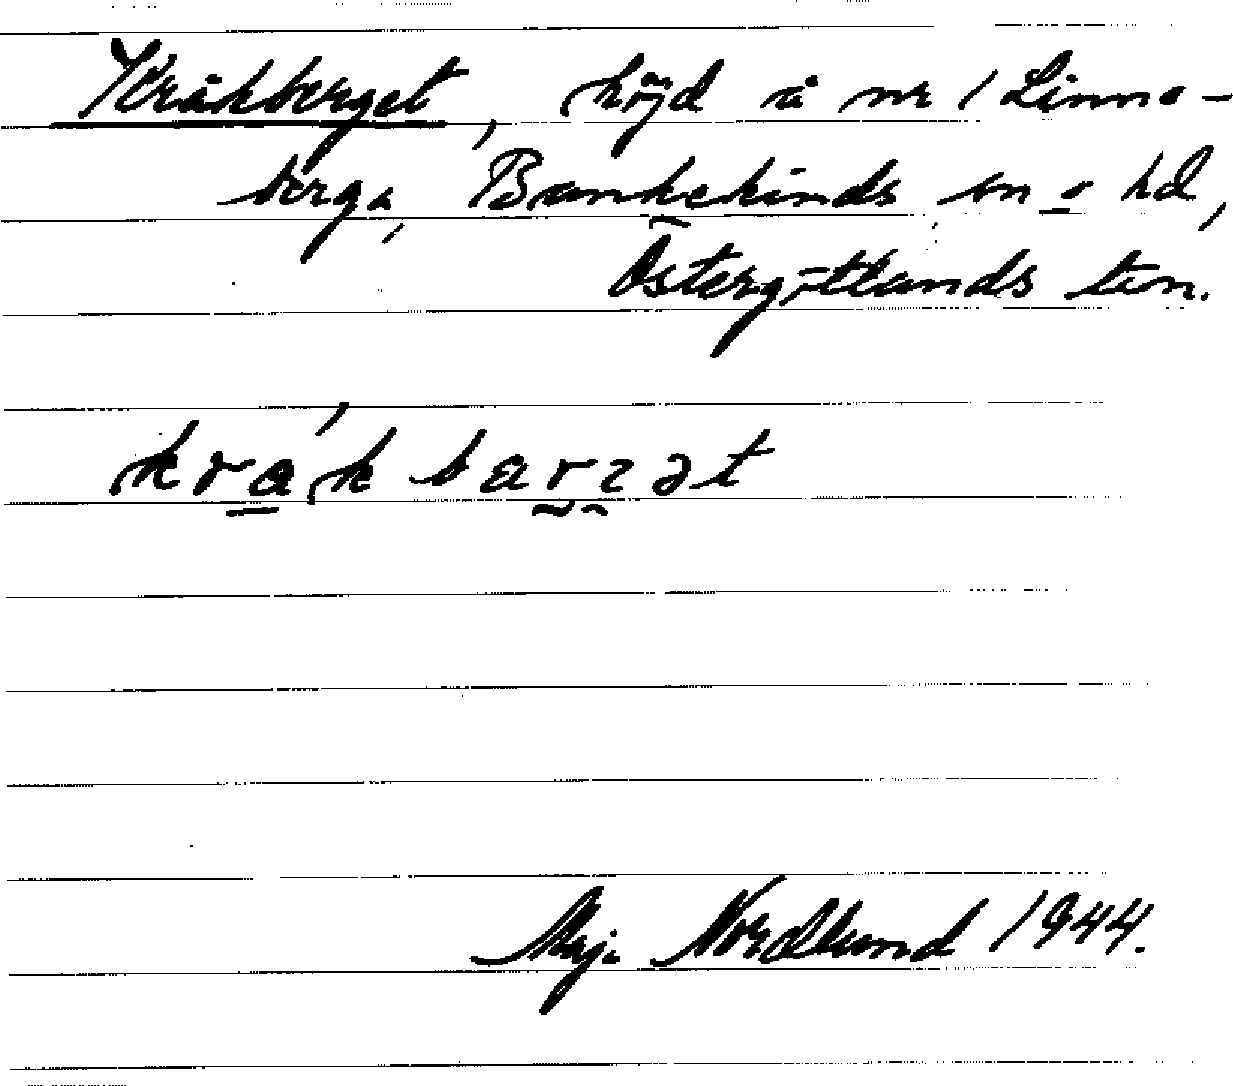 Kråkberget, höjd å nr 1 Linne-
berga, Bankekinds sn o hd,
Östergötlands län.
Maja Nordlund 1944.